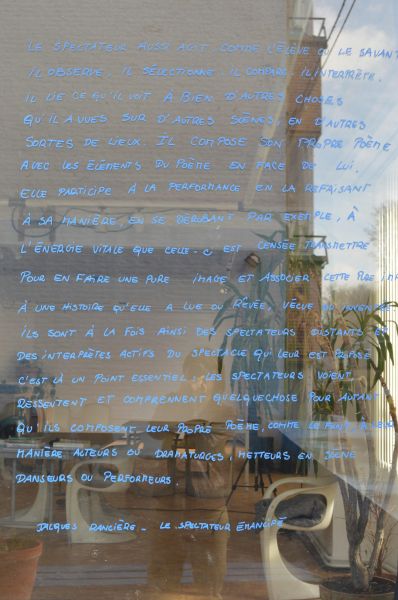 LE SPECTATEUR AUSSI AGIT, COMME L'ÉLÈVE OU LE SAVANT
IL OBSERVE, IL SÉLECTIONNE, IL COMPARE, IL INTERPRÈTE.
IL LIE CE QU'IL VOIT À BIEN D'AUTRES CHOSES
QU'IL A VUES SUR D'AUTRES SCÈNES, EN D'AUTRES
SORTES DE LIEUX. IL COMPOSE SON PROPRE POÈME
AVEC LES ÉLÉMENTS DU POÈME EN FACE DE LUI.
ELLE PARTICIPE À LA PERFORMANCE EN LA REFAISANT
À SA MANIÈRE EN SE DÉROBANT PAR EXEMPLE, À
L'ÉNERGIE VITALE QUE CELLE-C EST CENSÉE TRANSMETTRE
POUR EN FAIRE UNE PURE IMAGE ET ASSOCIER CETTE PURE IMA
À UNE HISTOIRE QU'ELLE A LUE OU RÊVÉE, VÉCUE OU
ILS SONT À LA FOIS AINSI DES SPECTATEURS DISTANTS ET
DES INTERPRÈTES ACTIFS DU SPECTACLE QUI LEUR EST PROPOSÉ
C'EST LÀ UN POINT ESSENTIEL: LES SPECTATEURS VOIENT,
RESSENTENT ET COMPRENNENT QUELQUECHOSE POUR AUTANT
QU'ILS COMPOSENT LEUR PROPRE POÈME, COMME LE FONT, À LEUR
MANIÈRE ACTEURS OU DRAMATURGES, METTEURS EN SCÈNE
DANSEURS OU PERFORMEURS.
JACQUES RANCIÈRE - LE SPECTATEUR ÉMANCIPÉ